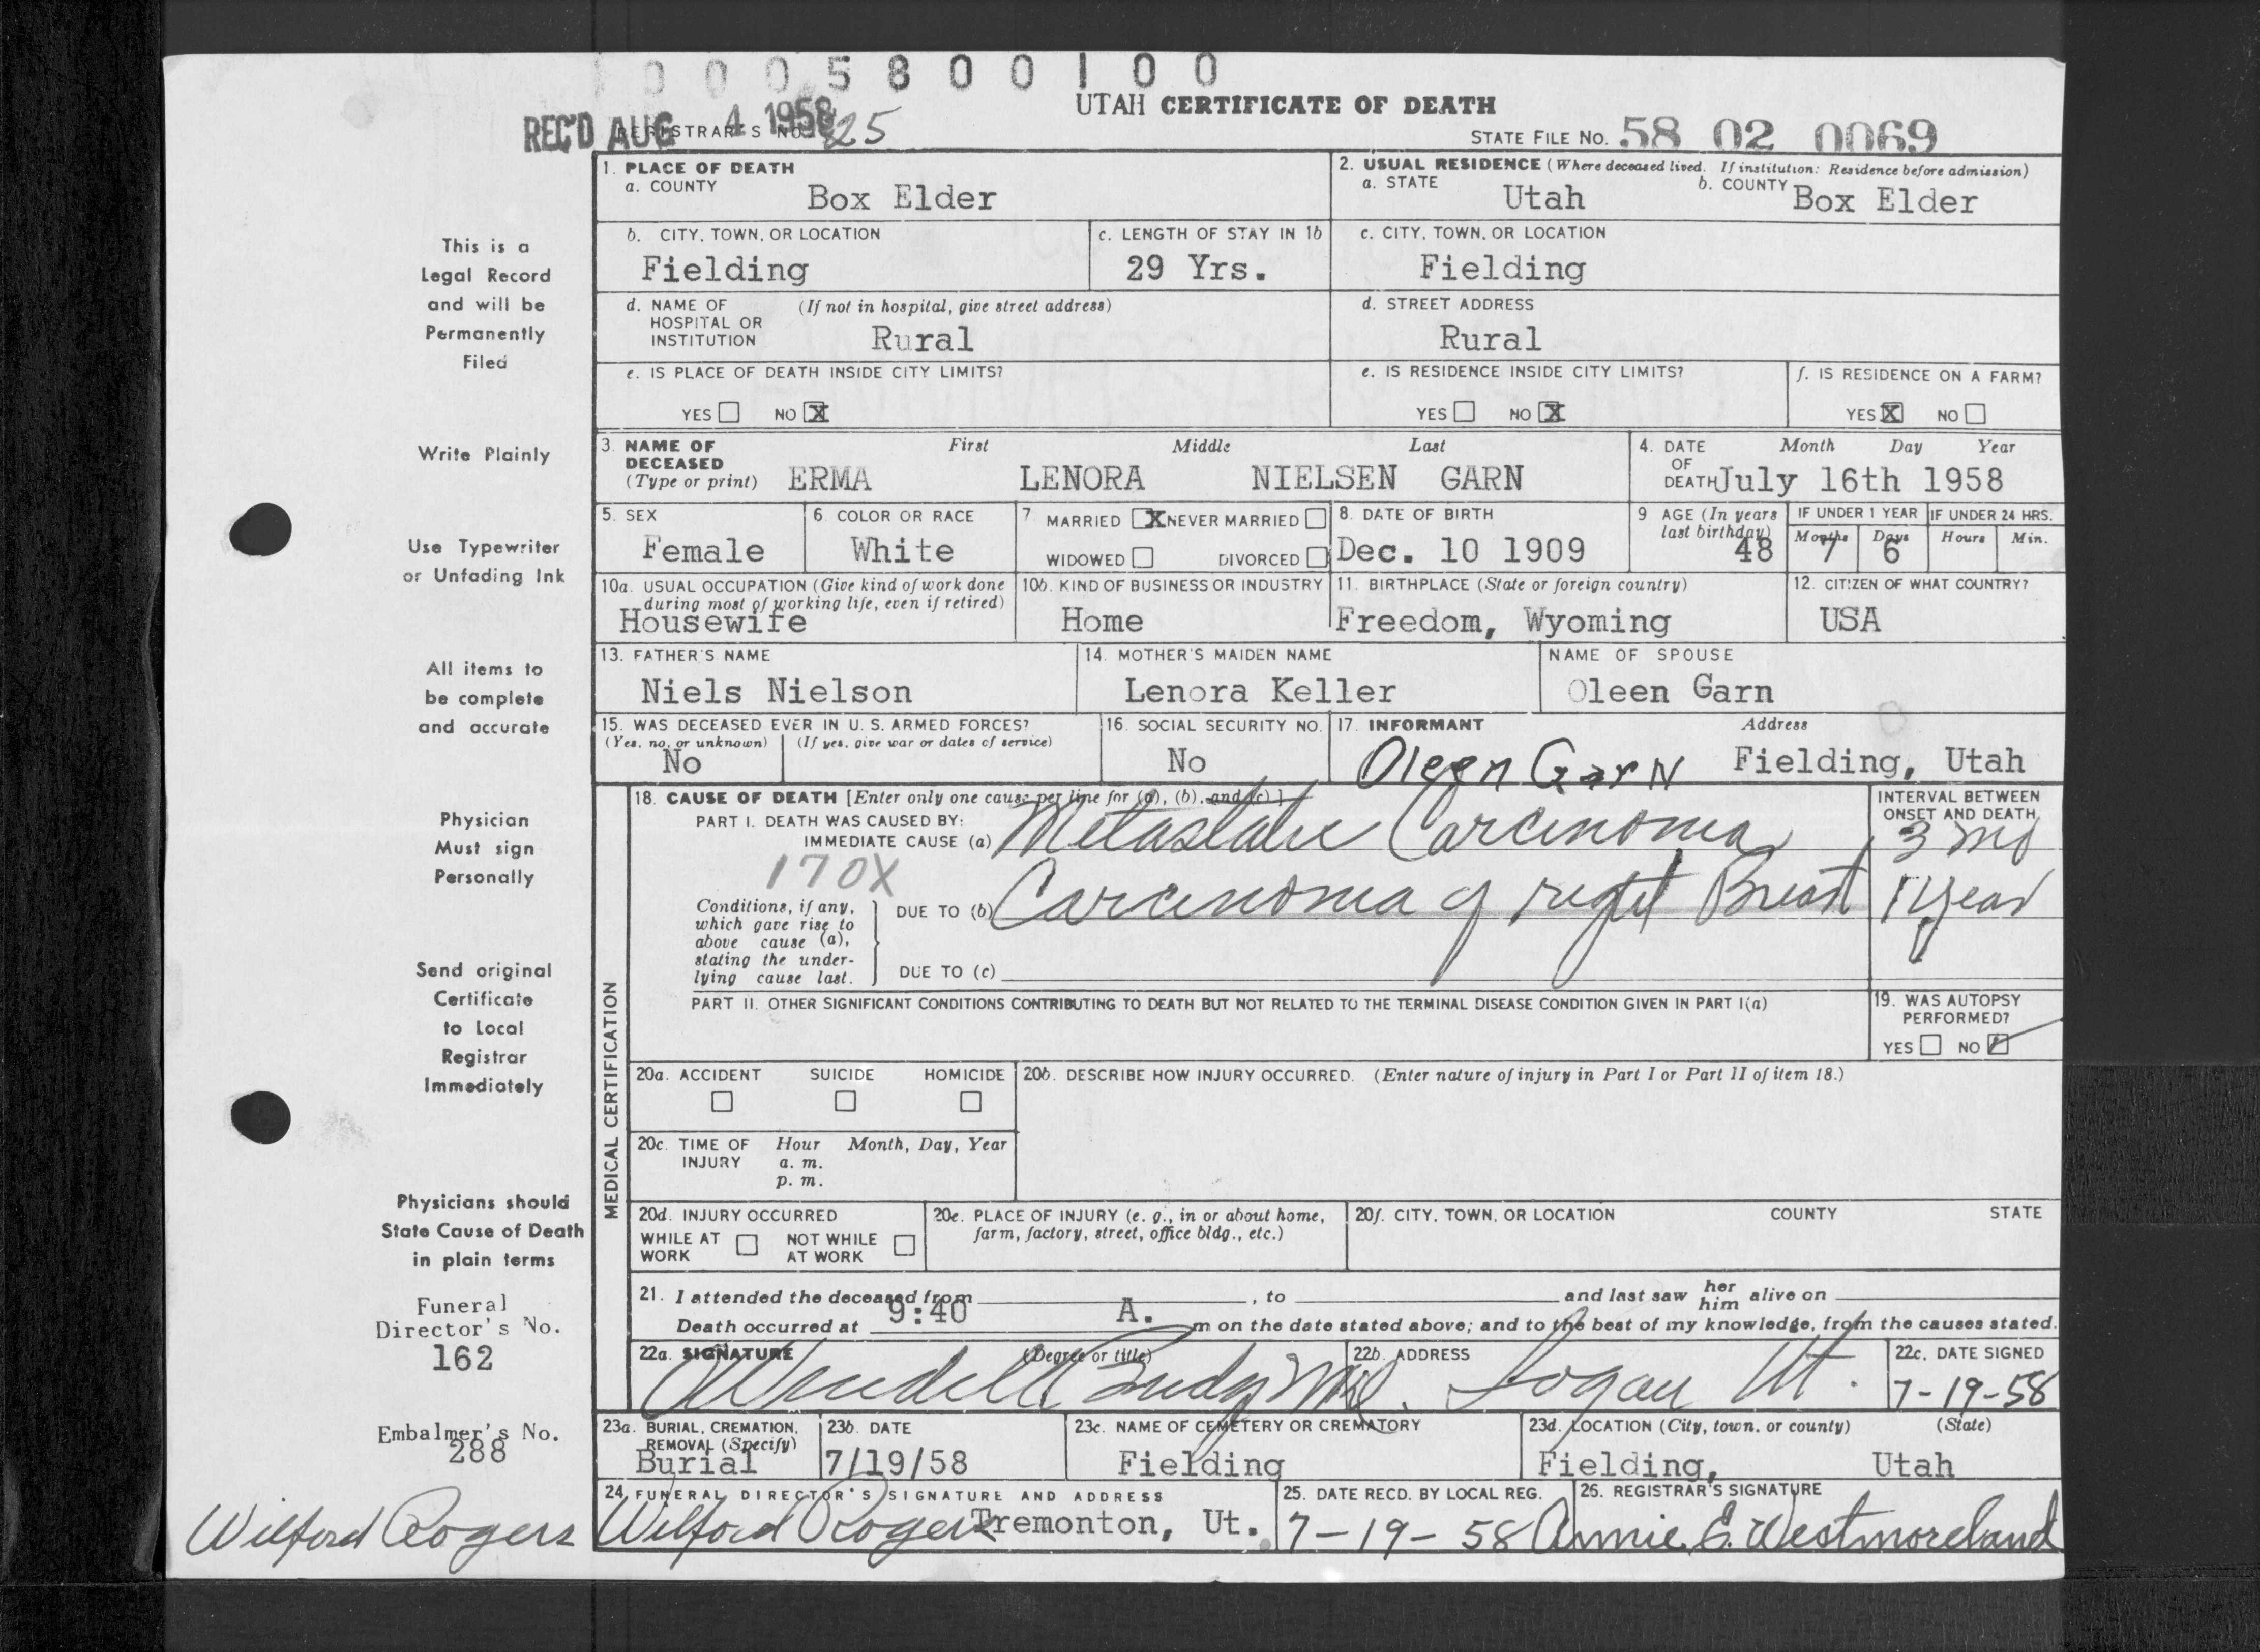 0005800100
UTAH CERTIFICATE OF DEATH
REC'D AUG 4 1958
REGISTRAR'S NO. 25
STATE FILE No. 58 02 0069
1. PLACE OF DEATH
a. COUNTY Box Elder
2. USUAL RESIDENCE (Where deceased lived. If institution: Residence before admission)
a. STATE Utah b. COUNTY Box Elder
b. CITY, TOWN, OR LOCATION Fielding
c. LENGTH OF STAY IN 1b 29 Yrs.
c. CITY, TOWN, OR LOCATION Fielding
d. NAME OF HOSPITAL OR INSTITUTION (If not in hospital, give street address) Rural
d. STREET ADDRESS Rural
e. IS PLACE OF DEATH INSIDE CITY LIMITS? YES NO X
e. IS RESIDENCE INSIDE CITY LIMITS? YES NO X
f. IS RESIDENCE ON A FARM? YES X NO
3. NAME OF DECEASED (Type or print) First Middle Last
ERMA LENORA NIELSEN GARN
4. DATE OF DEATH Month Day Year
July 16th 1958
5. SEX Female
6 COLOR OR RACE White
7 MARRIED X NEVER MARRIED WIDOWED DIVORCED
8. DATE OF BIRTH Dec. 10 1909
9 AGE (In years last birthday) 48
IF UNDER 1 YEAR Months 7 Days 6
IF UNDER 24 HRS. Hours Min.
10a. USUAL OCCUPATION (Give kind of work done during most of working life, even if retired) Housewife
10b. KIND OF BUSINESS OR INDUSTRY Home
11. BIRTHPLACE (State or foreign country) Freedom, Wyoming
12. CITIZEN OF WHAT COUNTRY? USA
13. FATHER'S NAME Niels Nielson
14. MOTHER'S MAIDEN NAME Lenora Keller
NAME OF SPOUSE Oleen Garn
15. WAS DECEASED EVER IN U. S. ARMED FORCES?
(Yes, no, or unknown) No (If yes, give war or dates of service)
16. SOCIAL SECURITY NO. No
17. INFORMANT Oleen Garn Address Fielding, Utah
MEDICAL CERTIFICATION
18. CAUSE OF DEATH [Enter only one cause per line for (a), (b), and (c).]
PART I. DEATH WAS CAUSED BY:
IMMEDIATE CAUSE (a) Metastatic Carcinoma
INTERVAL BETWEEN ONSET AND DEATH 3 mo
170X
Conditions, if any, which gave rise to above cause (a), stating the underlying cause last.
DUE TO (b) Carcinoma of right Breast 1 year
DUE TO (c)
PART II. OTHER SIGNIFICANT CONDITIONS CONTRIBUTING TO DEATH BUT NOT RELATED TO THE TERMINAL DISEASE CONDITION GIVEN IN PART I(a)
19. WAS AUTOPSY PERFORMED? YES NO
20a. ACCIDENT SUICIDE HOMICIDE
20b. DESCRIBE HOW INJURY OCCURRED. (Enter nature of injury in Part I or Part II of item 18.)
20c. TIME OF INJURY Hour Month, Day, Year
a. m.
p. m.
20d. INJURY OCCURRED
WHILE AT WORK NOT WHILE AT WORK
20e. PLACE OF INJURY (e. g., in or about home, farm, factory, street, office bldg., etc.)
20f. CITY, TOWN, OR LOCATION COUNTY STATE
21. I attended the deceased from , to and last saw her him alive on
Death occurred at 9:40 A. m on the date stated above; and to the best of my knowledge, from the causes stated.
22a. SIGNATURE (Degree or title) Wendell Budge MD.
22b. ADDRESS Logan Ut.
22c. DATE SIGNED 7-19-58
23a. BURIAL, CREMATION, REMOVAL (Specify) Burial
23b. DATE 7/19/58
23c. NAME OF CEMETERY OR CREMATORY Fielding
23d. LOCATION (City, town, or county) (State) Fielding, Utah
24. FUNERAL DIRECTOR'S SIGNATURE AND ADDRESS Wilford Rogers Tremonton, Ut.
25. DATE RECD. BY LOCAL REG. 7-19-58
26. REGISTRAR'S SIGNATURE Annie E. Westmoreland
This is a
Legal Record
and will be
Permanently
Filed
Write Plainly
Use Typewriter
or Unfading Ink
All items to
be complete
and accurate
Physician
Must sign
Personally
Send original
Certificate
to Local
Registrar
Immediately
Physicians should
State Cause of Death
in plain terms
Funeral
Director's No.
162
Embalmer's No.
288
Wilford Rogers